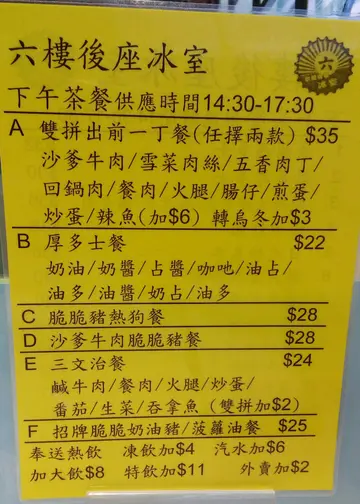 六樓後座冰室
六
下午茶餐供應時間14:30-17:30
A 雙拼出前一丁餐(任擇兩款) $35
沙爹牛肉/雪菜肉絲/五香肉丁/
回鍋肉/餐肉/火腿/腸仔/煎蛋/
炒蛋/辣魚(加$6) 轉烏冬加$3
B 厚多士餐 $22
奶油/奶醬/占醬/咖吔/油占/
油多/油醬/奶占/油多
C 脆脆豬熱狗餐 $28
D 沙爹牛肉脆脆豬餐 $28
E 三文治餐 $24
鹹牛肉/餐肉/火腿/炒蛋/
番茄/生菜/吞拿魚 (雙拼加$2)
F 招牌脆脆奶油豬/菠蘿油餐 $25
奉送熱飲 凍飲加$4 汽水加$6
加大飲$8 特飲加$11 外賣加$2